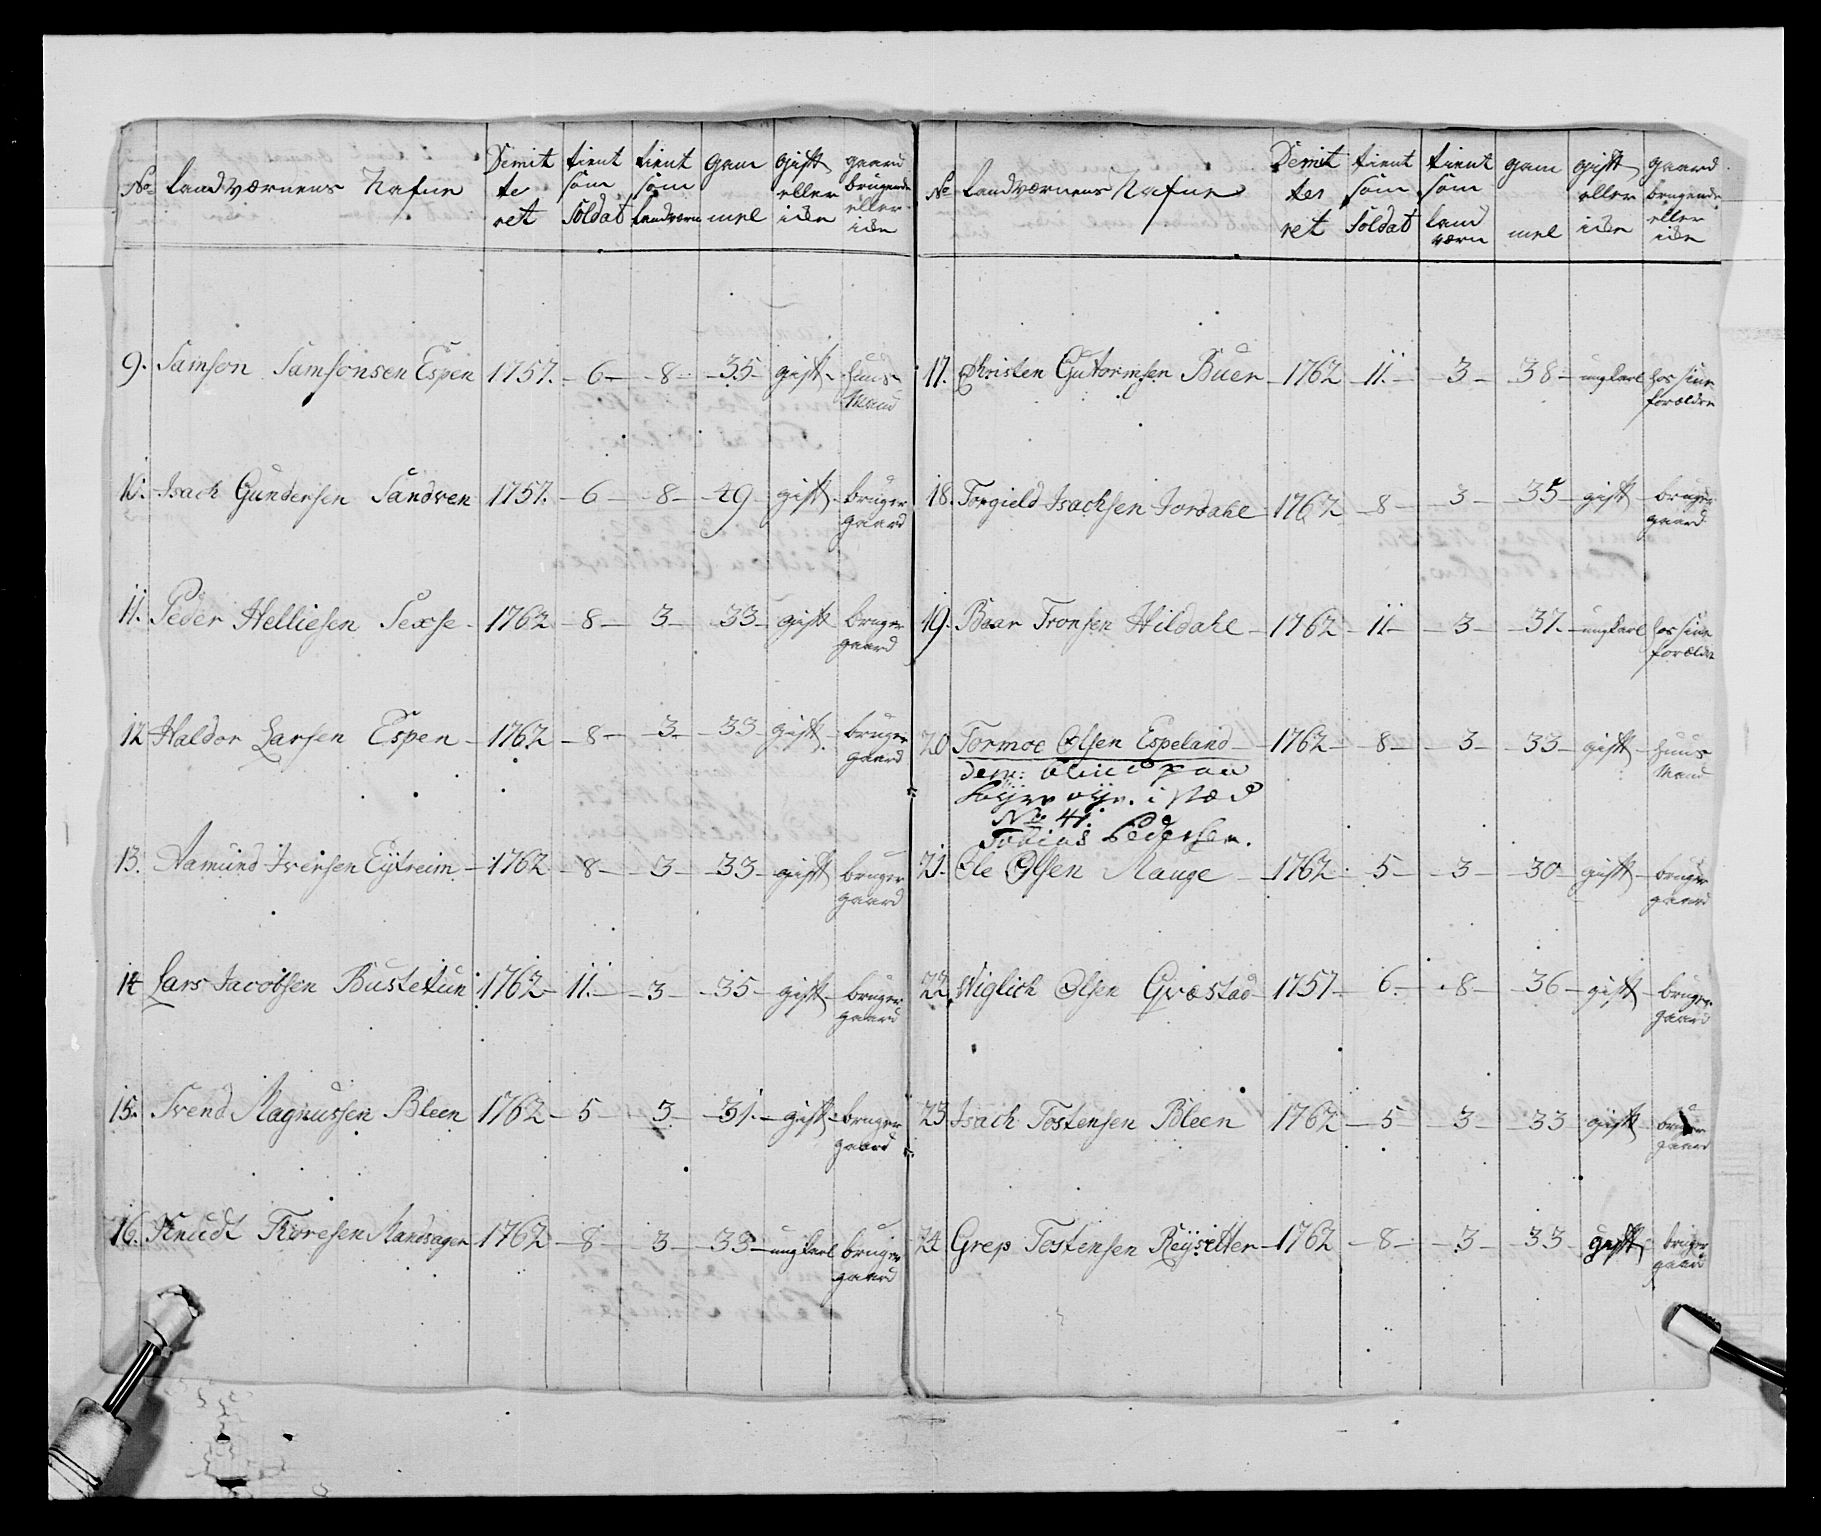 No Landværnens Nafne Demitteret tient som Soldat tient som Landværn gammel gift eller iche gaard brugende eller iche
9. Samson Samsonsen Espen 1757. 6 8 35 gift huus Mand
10. Isach Gundersen Sandven 1757. 6 8 49 gift bruger gaard
11. Peder Helliesen Sexse 1762 8 3 33 gift bruger gaard
12 Haldor Larsen Espen 1762 8 3 33 gift bruger gaard
13. Aamund Iversen Eÿtreim 1762 8 3 33 gift bruger gaard
14 Lars Jacobsen Bustetun 1762 11. 3 35 gift bruger gaard
15. Svend Magnussen Bleen 1762 5 3 31. gift bruger gaard
16. Knudt Thoresen Mandsager 1762 8 3 33 ungkarl bruger gaard
No Landværnens Nafne Demitteret tient som Soldat tient som Landværn gammel gift eller iche gaard brugende eller iche
17. Christen Gutormsen Buer 1762 11. 3 38 ungkarl hos sine forældre
18. Torgield Isachsen Jordahl 1762 8 3 35 gift bruger gaard
19. Baar Tronsen Hildahl 1762 11 3 37. ungkarl hos sine forældre
20 Tormoe Olsen Espeland 1762 8 3 33 gift huus Mand
i stæd
No 41.
Tobias Pedersen.
21. Ole Olsen Mauge 1762 5 3 30 gift bruger gaard
22. Wiglich Olsen Qvæstad 1757 6. 8 36 gift bruger gaard
23. Isach Tostensen Bleen 1762 5 3 33 gift bruger gaard
24. Grep Tostensen Reÿsetter 1762 8 3 33 gift bruger gaard